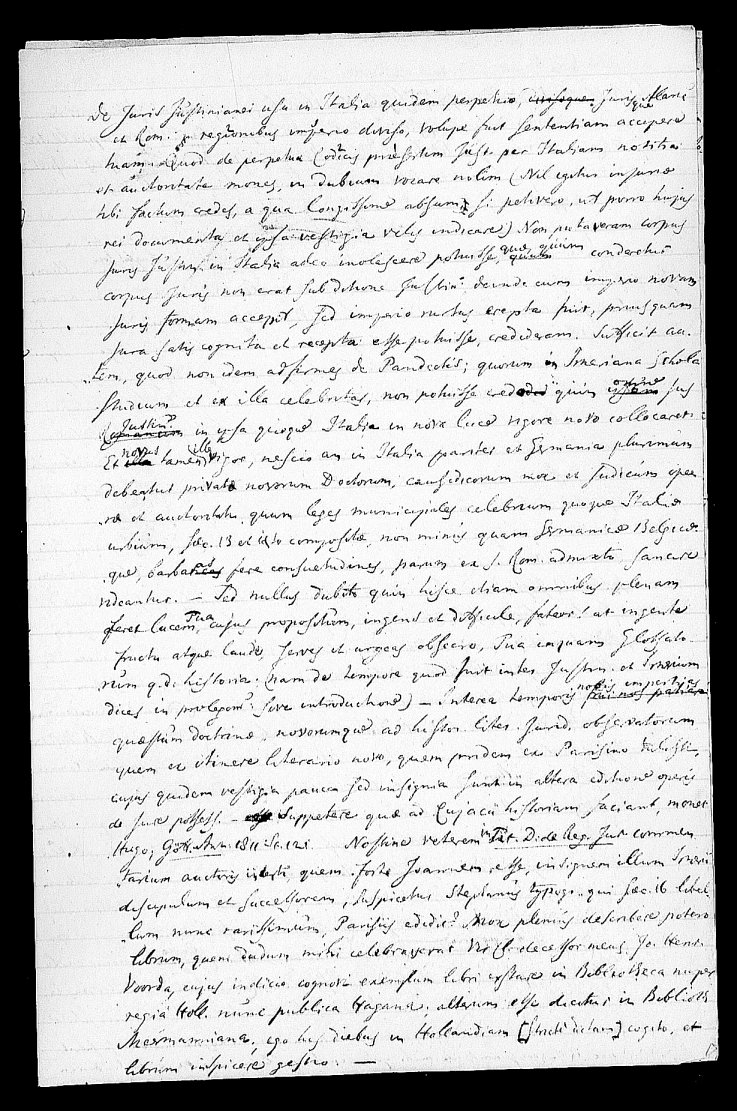 De Juris Justinianei usu in Italia quidem perpetuo, Juris
et Rom. regionibus imperio diviso, volupe fuit sententiam accipere
tuam. Quod de perpetua Codicis præsertim Just. per Italiam notitia
et auctoritate mones, in dubium vocare nolim (Nil igitur injuriæ
tibi factum credes, a qua longissime absum, si petivero, ut porro hujus
rei documenta et vestigia velis indicare) Non putaveram corpus
Juris Justin. in Italia adeo inolescere potuisse, quum conderetur
corpus Juris non erat sub ditione Justin. deinde cum imperio novam
Juris formam accepit, sed imperio rursus erepta fuit, priusquam
jura satis cognita et recepta esse potuisse, crediderem. Sufficit au-
tem, quod non idem adfirmes de Pandectis; quorum in Irneriana Schola
studium et ex illa celebritas, non potuisse quin Jus
Justin. in ipsa quoque Italia in nova luce vigore novo collocaret.
Et novus tamen ille vigor, nescio an in Italia pariter et Germania plurimum
debeatur privatæ novorum Doctorum, causidicorum mox et Judicum ope-
ræ et auctoritati, quum leges municipales celebrium quoque Italiæ
urbium, sæc. 13 et compositæ, non minus quam Germanicæ Belgicæ-
que, barbaras fere consuetudines, parum ex J. Rom. admixto, sancire
videantur. — Sed nullus dubito quin hisce etiam omnibus plenam
feret lucem Tua, cujus propositum, ingens et difficile, fateor! at ingente
fructu atque laude, serves et urgeas obsecro, Tua inquam Glossato-
rum q.d. historia: (nam de tempore quod fuit inter Justin. et Irnerium
dices in prolegom. sive introductione) — Interea temporis nobis impertias
quæstum doctrinæ, novorumque ad histor. liter. jurid. observatorum
quem ex itinere literario novo, quem pridem ex Parisino
cujus quidem vestigia pauca sed insignia sunt in altera editione operis
de jure possess. — Suppetere quæ ad Cujacii historiam faciant, monet
Hugo, Gött. Anz. 1811. Nostine veterem in Tit. D. de Reg. Jur. commen-
tarium auctoris incerti, quem forte Joannem esse, insignem illum Irnerii
discipulum et successorem, suspicatur Stephanus typogr. qui sæc. 16 libel-
lum nunc rarissimum, Parisiis edidit? Mox plenius describere potero
librum, quem dudum mihi celebraverat decessor meus, Jo. Henr.
Voorda, cujus indicio cognovi exemplum libri exstare in Bibliotheca nuper
regia Holl. nunc publica Hagana, alterum esse dicitur in Biblioth.
Meermanniana, ego his diebus in Hollandiam [stricte dictam] cogito, et
librum inspicere gestio. —